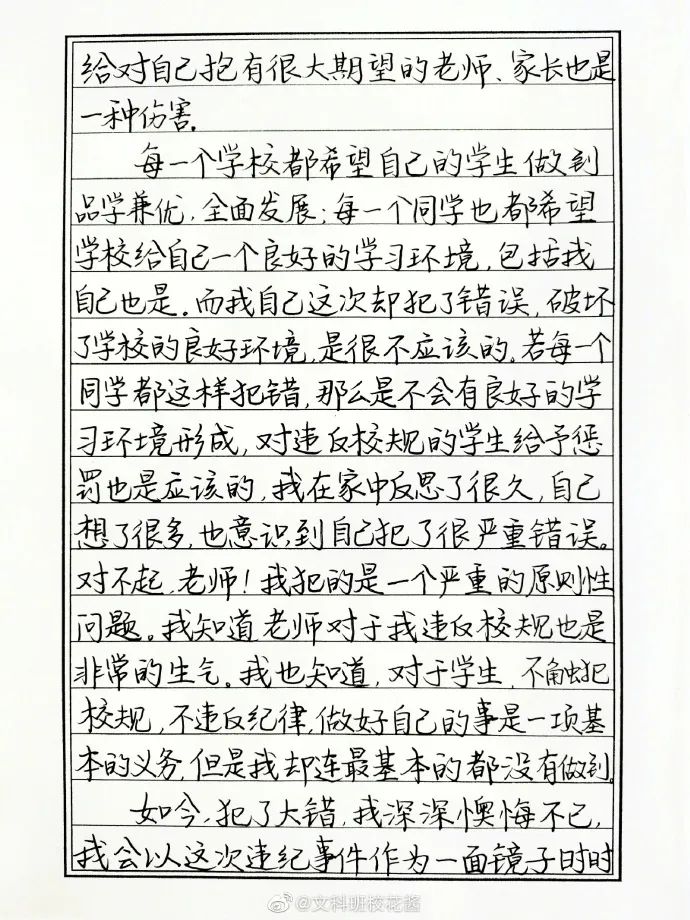 给对自己抱有很大期望的老师、家长也是
一种伤害.
每一个学校都希望自己的学生做到
品学兼优,全面发展;每一个同学也都希望
学校给自己一个良好的学习环境,包括我
自己也是.而我自己这次却犯了错误,破坏
了学校的良好环境,是很不应该的.若每一个
同学都这样犯错,那么是不会有良好的学
习环境形成,对违反校规的学生给予惩
罚也是应该的,我在家中反思了很久,自己
想了很多,也意识到自己犯了很严重错误。
对不起,老师!我犯的是一个严重的原则性
问题。我知道老师对于我违反校规也是
非常的生气。我也知道,对于学生,不触犯
校规,不违反纪律,做好自己的事是一项基
本的义务,但是我却连最基本的都没有做到.
如今,犯了大错,我深深懊悔不已,
我会以这次违纪事件作为一面镜子时时
@文科班校花酱